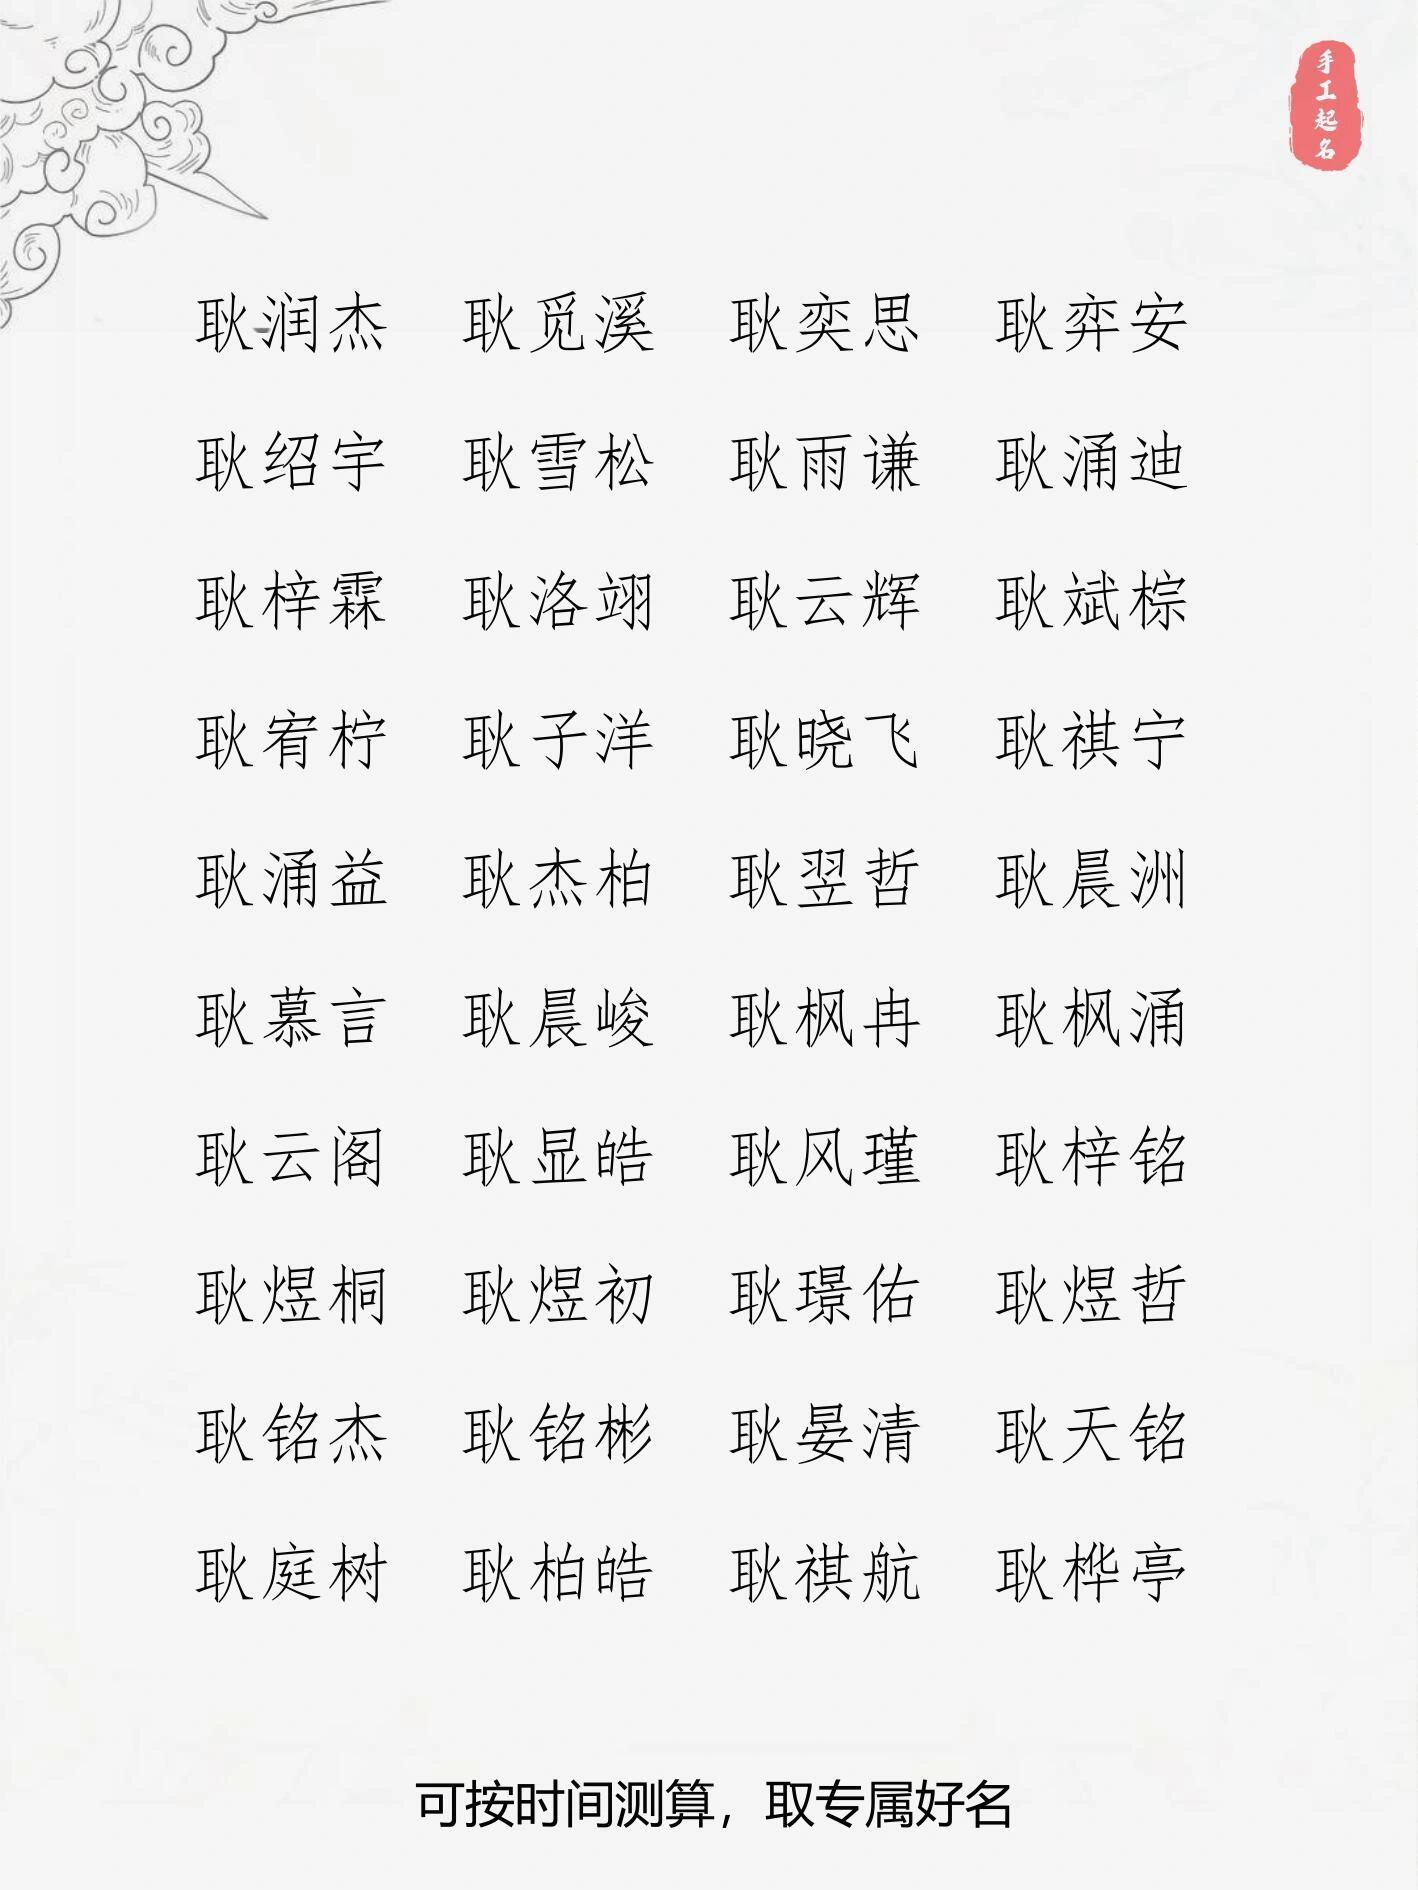 手工起名
耿润杰 耿觅溪 耿奕思 耿弈安
耿绍宇 耿雪松 耿雨谦 耿涌迪
耿梓霖 耿洛翊 耿云辉 耿斌棕
耿宥柠 耿子洋 耿晓飞 耿祺宁
耿涌益 耿杰柏 耿翌哲 耿晨洲
耿慕言 耿晨峻 耿枫冉 耿枫涌
耿云阁 耿显皓 耿风瑾 耿梓铭
耿煜桐 耿煜初 耿璟佑 耿煜哲
耿铭杰 耿铭彬 耿晏清 耿天铭
耿庭树 耿柏皓 耿祺航 耿桦亭
可按时间测算，取专属好名